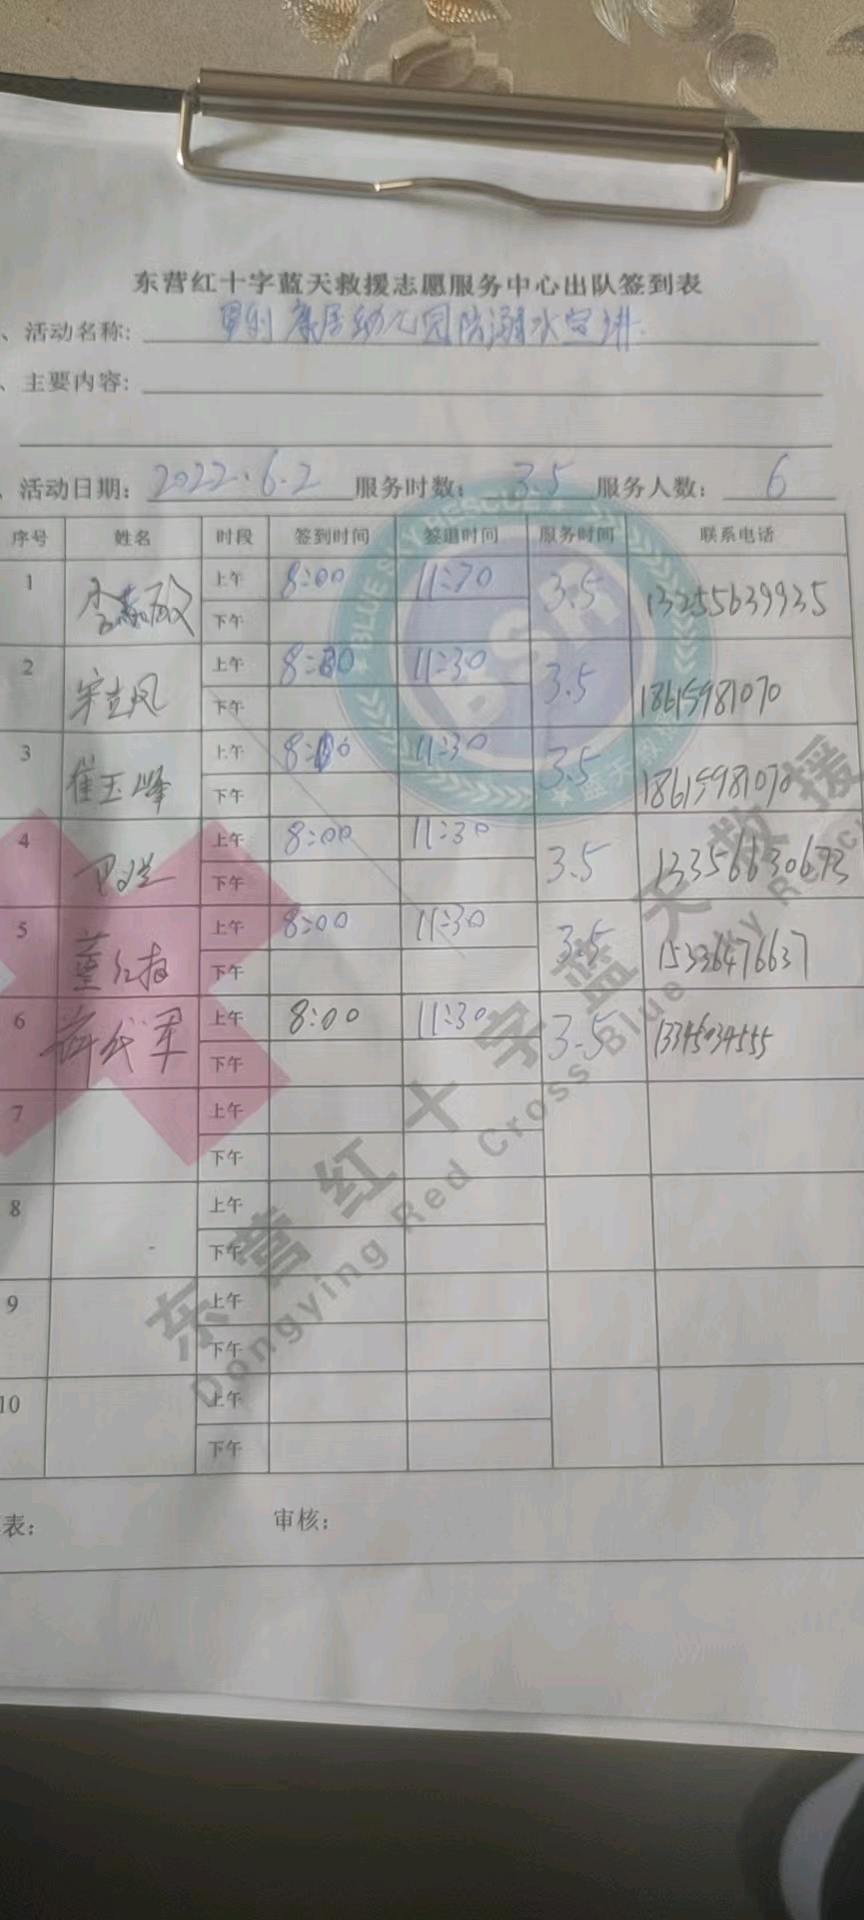 东营红十字蓝天救援志愿服务中心出队签到表
、活动名称: 垦利康居幼儿园防溺水宣讲
、主要内容:
、活动日期: 2022.6.2 服务时数: 3.5 服务人数: 6
序号 姓名 时段 签到时间 签退时间 服务时间 联系电话
1 上午 8:00 11:30 3.5 13255639935
下午
2 宋立凤 上午 8:00 11:30 3.5 18615981070
下午
3 崔玉峰 上午 8:00 11:30 3.5 18615981070
下午
4 上午 8:00 11:30 3.5 13356630673
下午
5 董红梅 上午 8:00 11:30 3.5 15336476637
下午
6 薛成军 上午 8:00 11:30 3.5 13345034555
下午
7 上午
下午
8 上午
下午
9 上午
下午
10 上午
下午
表: 审核:
BLUE SKY RESCUE
BSR
蓝天救援
东营红十字蓝天救援
Dongying Red Cross Blue Sky Rescue